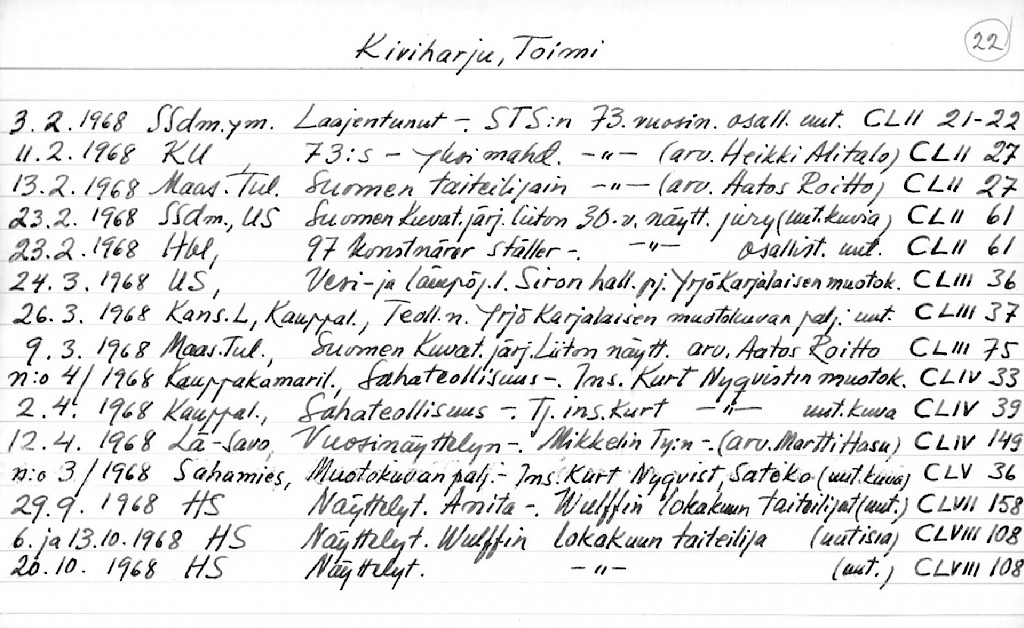 22
Kiviharju, Toimi
3.2.1968 SSdm.ym. Laajentunut -. STS:n 73. vuosin. osall. uut. CLII 21-22
11.2.1968 KU, 73:s - Yksi mahd. -"- (arv. Heikki Alitalo) CLII 27
13.2.1968 Maas.Tul. Suomen taiteilijain -"- (arv. Aatos Roitto) CLII 27
23.2.1968 SSdm., US Suomen Kuvat.järj. liiton 30-v. näytt. jury (uut.kuvia) CLII 61
23.2.1968 Hbl, 97 konstnärer ställer -. -"- osallist. uut. CLII 61
24.3.1968 US, Vesi- ja lämpöj.l. Siron hall. pj. Yrjö Karjalaisen muotok. CLIII 36
26.3.1968 Kans.L, Kauppal., Teoll.n. Yrjö Karjalaisen muotokuvan palj. uut. CLIII 37
9.3.1968 Maas.Tul., Suomen Kuvat.järj. Liiton näytt. arv. Aatos Roitto CLIII 75
n:o 4/1968 Kauppakamaril., Sahateollisuus -. Ins. Kurt Nyqvistin muotok. CLIV 33
2.4.1968 Kauppal., Sahateollisuus -. Tj. ins. Kurt -"- uut.kuva CLIV 39
12.4.1968 Lä-Savo, Vuosinäyttelyn -. Mikkelin Ty:n -. (arv. Martti Hasu) CLIV 149
n:o 3/1968 Sahamies, Muotokuvan palj. - Ins. Kurt Nyqvist, Sateko (uut.kuva) CLV 36
29.9.1968 HS Näyttelyt. Anita -. Wulffin lokakuun taiteilijat (uut.) CLVII 158
6. ja 13.10.1968 HS Näyttelyt. Wulffin lokakuun taiteilija (uutisia) CLVIII 108
20.10.1968 HS Näyttelyt. -"- (uut.) CLVIII 108